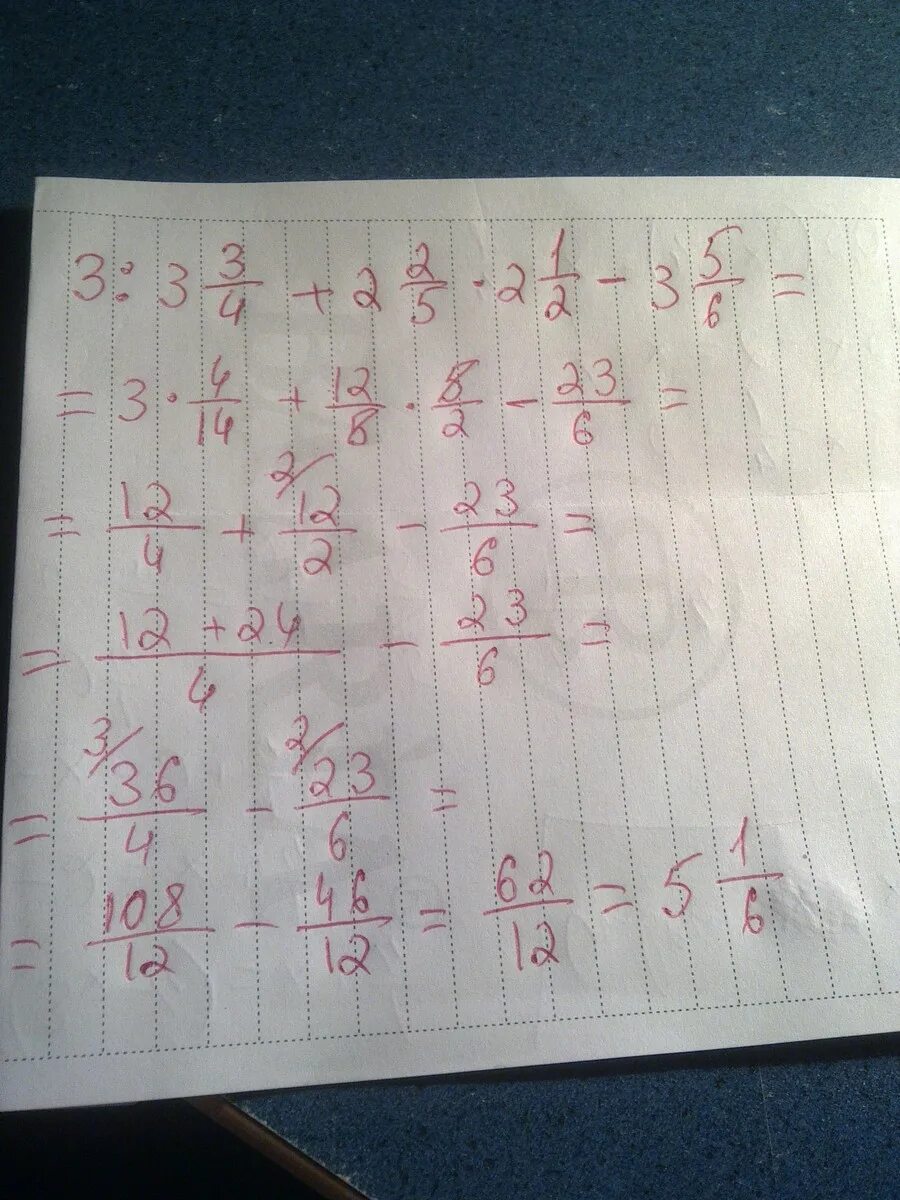 3 : 3 3/4 + 2 2/5 · 2 1/2 - 3 5/6 =
= 3 · 4/14 + 12/5 · 5/2 - 23/6 =
= 12/4 + 2/ 12/2 - 23/6 =
= (12 + 24)/4 - 23/6 =
= 3/ 36/4 - 2/ 23/6 =
= 108/12 - 46/12 = 62/12 = 5 1/6